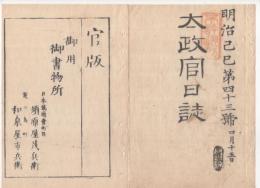 明治己巳第四十三號 四月十五日
太政官日誌
官版
御用
御書物所
日本橋通壹町目
須原屋茂兵衛
和泉屋市兵衛